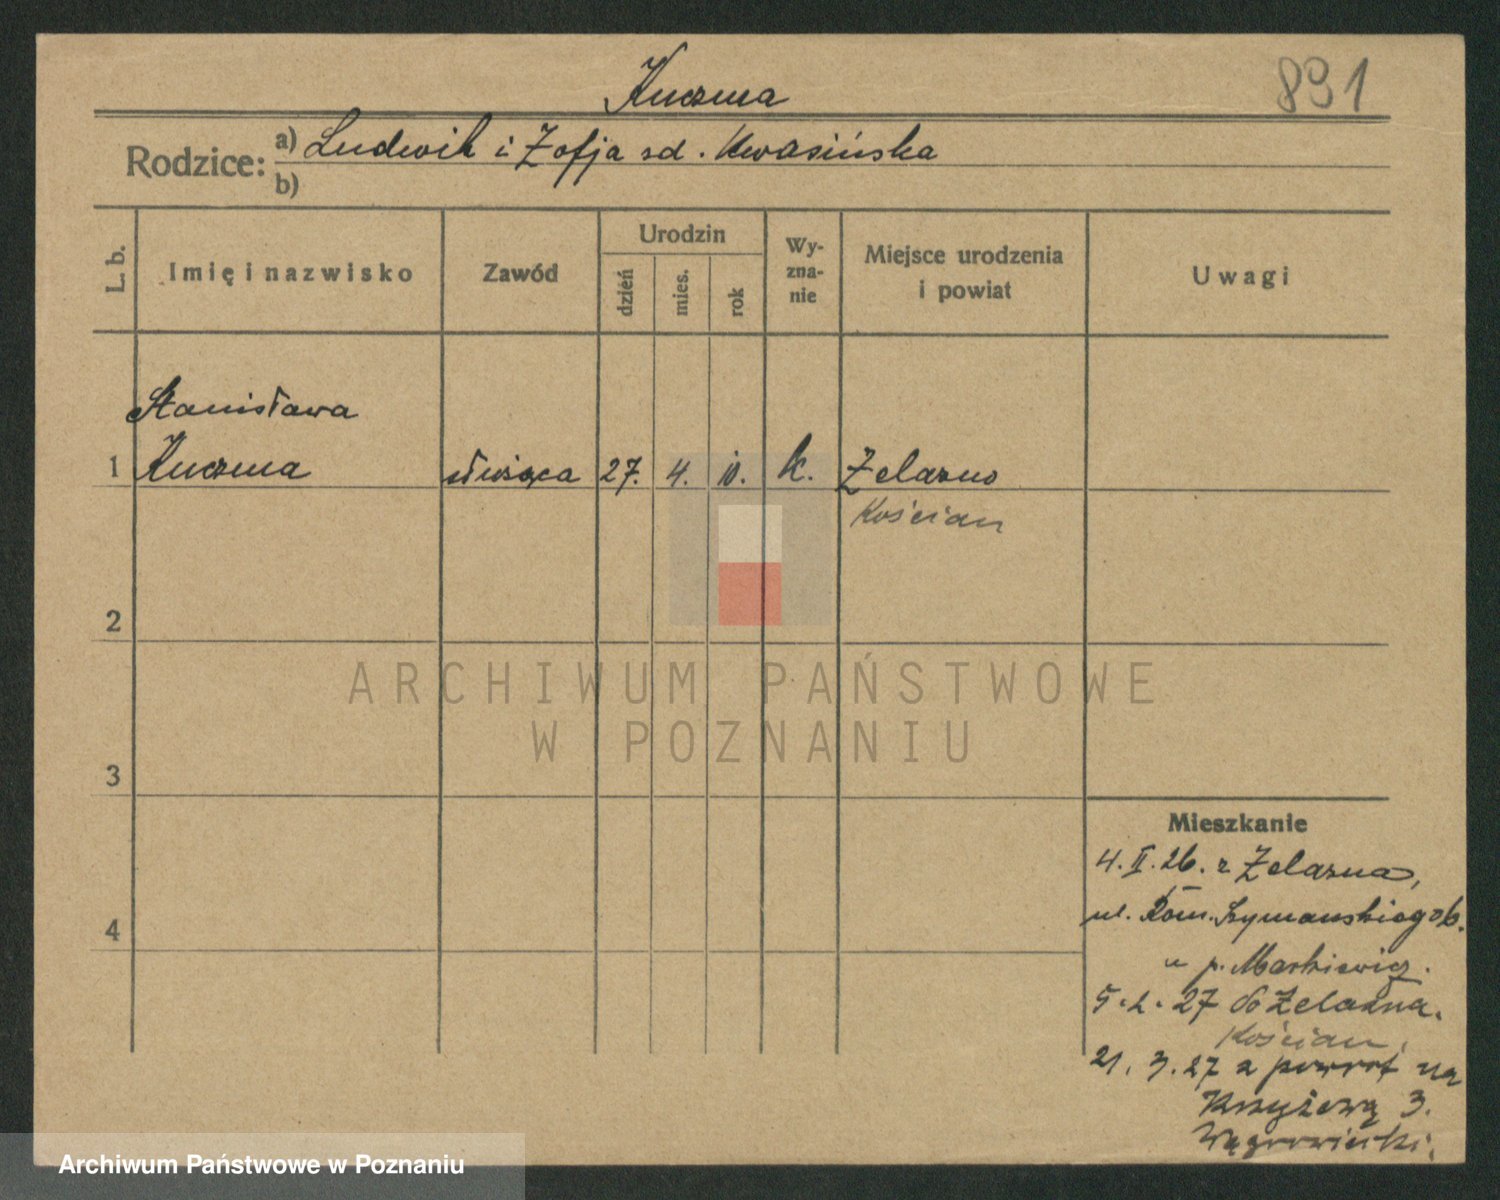 Kuczma
891
Rodzice: a) Ludwik i Zofja zd. Kwasińska
b)
L. b.
Imię i nazwisko
Zawód
Urodzin
dzień
mies.
rok
Wy-
zna-
nie
Miejsce urodzenia
i powiat
Uwagi
Stanisława
1 Kuczma służąca 27. 4. 10. k. Żelazno
Kościan
2
ARCHIWUM PAŃSTWOWE
W POZNANIU
3
Mieszkanie
4. II. 26. z Żelazna,
ul. Rom. Szymańskiego 6.
4
u p. Markiewicz.
5. 2. 27 do Żelazna.
Kościan,
21. 3. 27 z powrot na
Krzyżową 3.
Archiwum Państwowe w Poznaniu